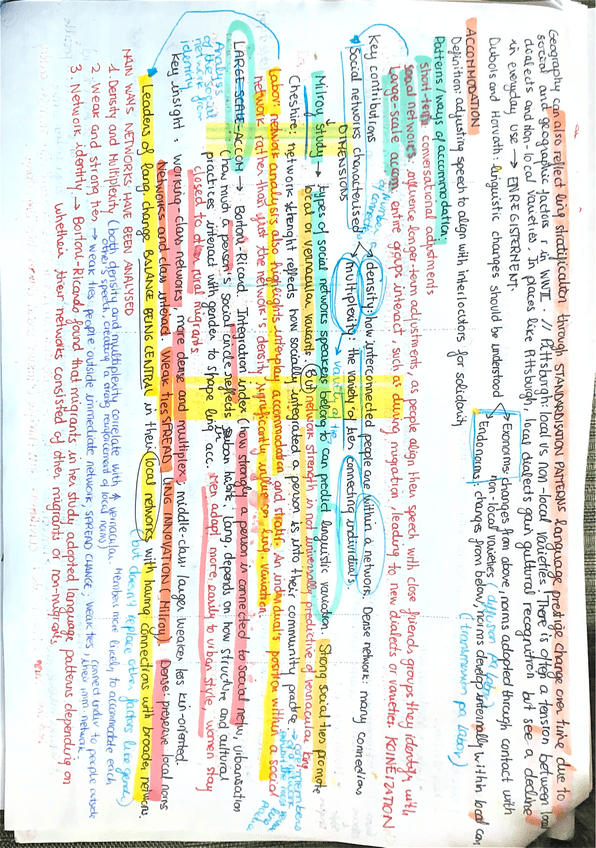 Geography can also reflect ling stratification through STANDARDISATION PATTERNS: language prestige change over time due to
social and geographic factors r. in WWII. // Pittsburgh local vs non-local varieties: There is often a tension between local
dialects and non-local varieties. In places like Pittsburgh, local dialects gain cultural recognition but see a decline
in everyday use → ENREGISTERMENT.
Dubois and Horvath: linguistic changes should be understood
Exonorms: changes from above, norms adopted through contact with
non-local varieties (diffusion
Endonorms: changes from below, norms develop internally within local com
(transmission
ACCOMMODATION
Definition: adjusting speech to align with interlocutors for solidarity
Patterns/ways of accommodation:
short-term: conversational adjustments
Large-scale accom: entire groups interact, such as during migration, leading to new dialects or varieties KOINEIZATION
Social networks influence longer-term adjustments, as people align their speech with close friends, groups they identify with
Key contributions
Social networks characterised
density: how interconnected people are within a network. Dense network: many connections
number of connections
multiplexity: the variety of ties connecting individuals.
variety of ties
DIMENSIONS
Milroy Study → types of social networks speakers belong to can predict linguistic variation. Strong social ties promote
local or vernacular variants. (But network strength is not universally predictive of vernacular lang
Cheshire: network strenght reflects how socially integrated a person is into their community practice
Labov: network analysis also highlights interplay accommodation and strats. An individual's position within a social
network rather than just the network's density, significantly influence ling. variation.
LARGE-SCALE ACCOM → Bortoni-Ricard. Integration index (how strongly a person is connected to social netw, urbanisation
(how much a person's social circle reflects urban habits. Lang. depends on how structure and cultural
practices interact with gender to shape ling acc. Men adapt more easily to urban style, women stay
closed to other rural migrants.
Analysis of the social network
identity
Key insight: working-class networks, more dense and multiplex, middle-class larger weaker less kin-oriented.
Networks and class interact. Weak ties SPREAD LING INNOVATION (Milroy). Dense: preserve local norms
Leaders of lang. change BALANCE BEING CENTRAL in their local networks with having connections with broader network.
(but doesn't replace other factors like gender)
MAIN WAYS NETWORKS HAVE BEEN ANALYSED
1. Density and Multiplexity (both density and multiplexity correlate with ↑ vernacular. Members more likely to accommodate each
other's speech, creating a strong reinforcement of local norms)
2. Weak and strong ties → weak ties, people outside immediate network SPREAD CHANGE; weak ties, connect indiv to people outside
their imm network.
3. Network identity → Bortoni-Ricardo found that migrants in her study adopted language patterns depending on
whether their networks consisted of other migrants or non-migrant.